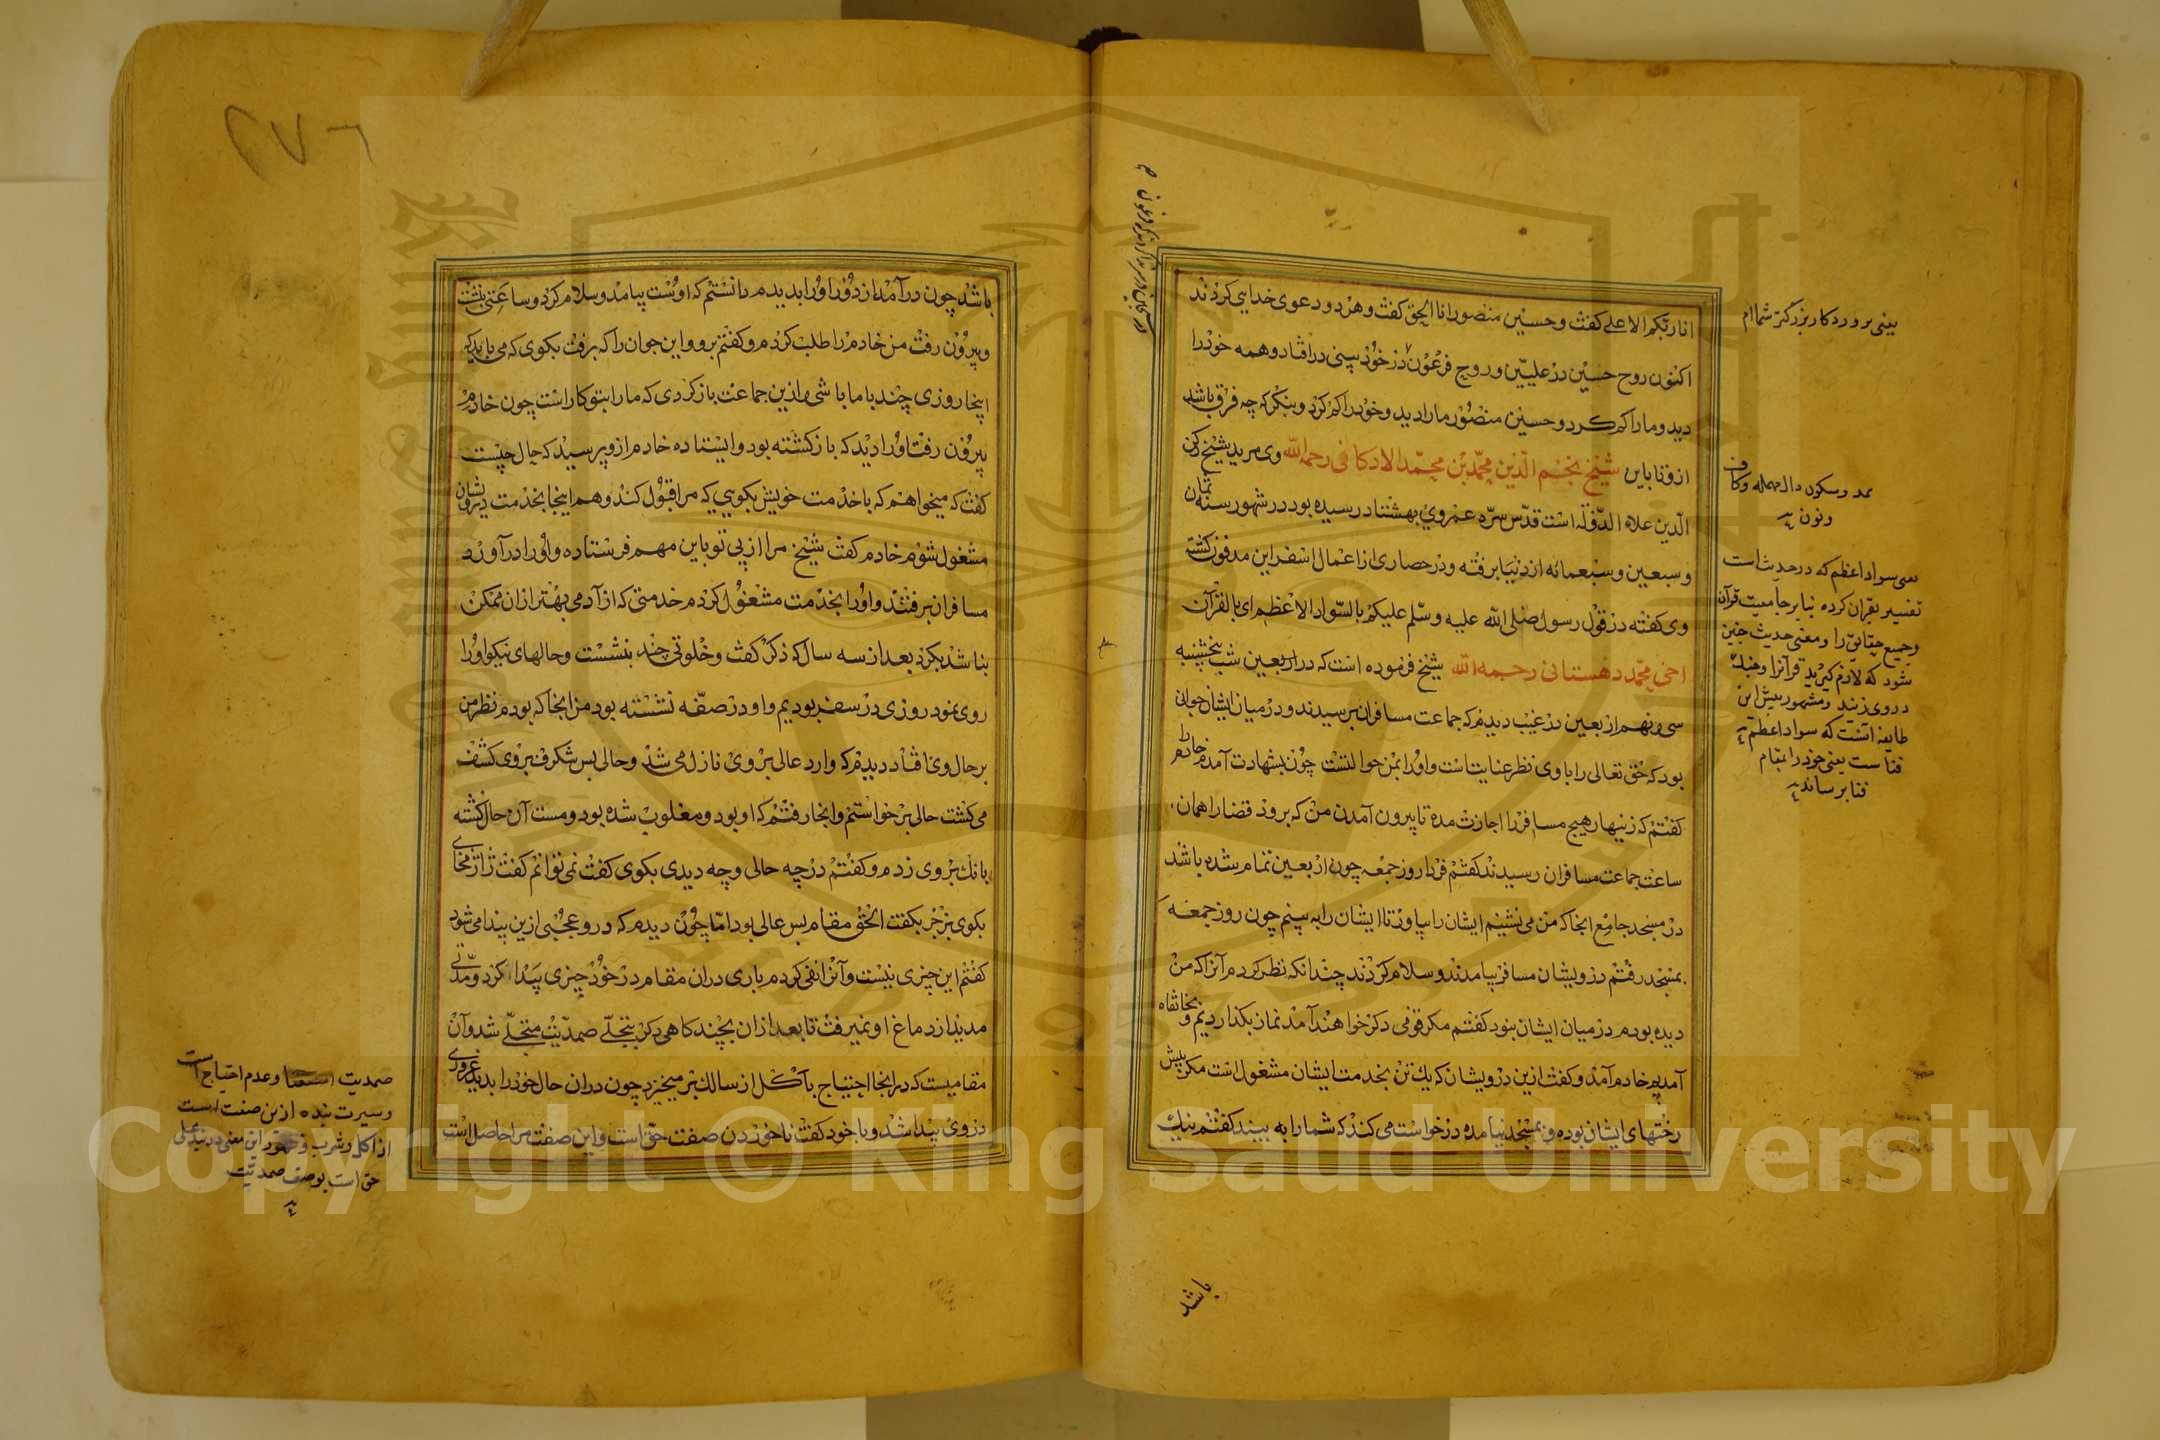 انا ربکم الاعلی کفت و حسین منصور انا الحق کفت و هر دو دعوی خدایی کردند
اکنون روح حسین در علیین و روح فرعون در خود بینی در افتاد و همه خود را
دید و ما را کم کرد و حسین منصور ما را دید و خود را کم کرد و بنکر که چه فرق باشد
شیخ نجم الدین محمد بن محمد الادکانی رحمه الله وی مرید شیخ رکن
الدین علاء الدوله است قدس سره عمر وی بهشتاد رسیده بود در شهور سنه ثمان
و سبعین و سبعمائه از دنیا برفته و در حصاری از اعمال اسفراین مدفون کشته
وی کفته در قول رسول صلی الله علیه و سلم علیکم بالسواد الاعظم ای بالقرآن
اخی محمد دهستانی رحمه الله شیخ فرموده است که در اربعین شب پنجشنبه
سی و نهم اربعین در غیب دیدم که جماعت مسافران برسیدند و در میان ایشان جوانی
بود که حق تعالی را با وی نظر عنایت است و او را بمن حوالتست چون بشهادت آمدم خادم را
کفتم که زنهار هیچ مسافر را اجازت مده تا بیرون آمدن من که برود قضا را همان
ساعت جماعت مسافران رسیدند کفتم فردا روز جمعه چون اربعین تمام شده باشد
در مسجد جامع انجا که من می نشینم ایشان را بیاور تا ایشان را به بینم چون روز جمعه
بمسجد رفتم درویشان مسافر بیامدند و سلام کردند چندانکه نظر کردم آنرا که من
دیده بودم در میان ایشان نبود کفتم مکر قومی دکر خواهند آمد نماز بکذاردیم و بخانقاه
آمدیم خادم آمد و کفت ازین درویشان که یک تن بخدمت ایشان مشغول است مکر پیش
رختهای ایشان بوده و بمسجد نیامده درخواست می کند که شما را به بیند کفتم نیک
باشد
یعنی پروردکار بزرکتر شما ام
و سکون دال مهمله و کاف
و نون
یعنی سواد اعظم که در حدیث است
تفسیر بقرآن کرده بنا بر جامعیت قرآن
و جمیع حقایق را و معنی حدیث چنین
شود که لازم کیرید قرآنرا و چنک
در وی زنید و مشهور پیش این
طایفه آنست که سواد اعظم
فناست یعنی خود را بمقام
فنا برسانید
باشد چون درآمد از دور او را بدیدم دانستم که اوست بیامد و سلام کرد و ساعتی بنشست
و بیرون رفت من خادم را طلب کردم و کفتم برو و این جوان را که برفت بکوی که می باید که
اینجا روزی چند با ما باشی و ازین جماعت باز کردی که ما را بتو کار است چون خادم
بیرون رفت او را دید که باز کشته بود و ایستاده خادم ازو پرسید که حال چیست
کفت که میخواهم که با خدمت خویش بکویی که مرا قبول کند و هم اینجا بخدمت درویشان
مشغول شوم خادم کفت شیخ مرا از پی تو باین مهم فرستاده و او را درآورد
مسافران برفتند و او را بخدمت مشغول کردم خدمتی که از آدمی بهتر ازان ممکن
نباشد بکرد بعد از سه سال که ذکر کفت و خلوتی چند بنشست و حالهای نیکو او را
روی نمود روزی در سفر بودیم و او در صفه نشسته بود من انجا که بودم نظر من
بر حال وی افتاد دیدم که وارد عالی بر وی نازل می شد و حالی بس شکرف بر وی کشف
می کشت حالی برخواستم و انجا رفتم که او بود و مغلوب شده بود و مست آن حال کشته
بانک بر وی زدم و کفتم در چه حالی و چه دیدی بکوی کفت نمی توانم کفت
بکوی بزجر بکفت الحق مقام بس عالی بود اما چون دیدم که در و عجبی ازین پیدا می شود
کفتم این چیزی نیست و آنرا نفی کردم باری دران مقام در خود چیزی پیدا کرد و مدتی
مدید از دماغ او نمیرفت تا بعد ازان بچند کاهی دکر بتجلی صمدیت متجلی شد و آن
مقامیست که در انجا احتیاج باکل از سالک بر میخیزد چون دران حال خود را بدید غروری
در وی پیدا شد و با خود کفت ناخوردن صفت حق است و این صفت مرا حاصل است
صمدیت استغنا و عدم احتیاج است
و سیرت بنده ازین صفت
از اکل و شرب و ظهور این معنی در بنده تجلی
حق است بوصف صمدیت
٢٧٦
King Saud University
1957
Copyright © King Saud University